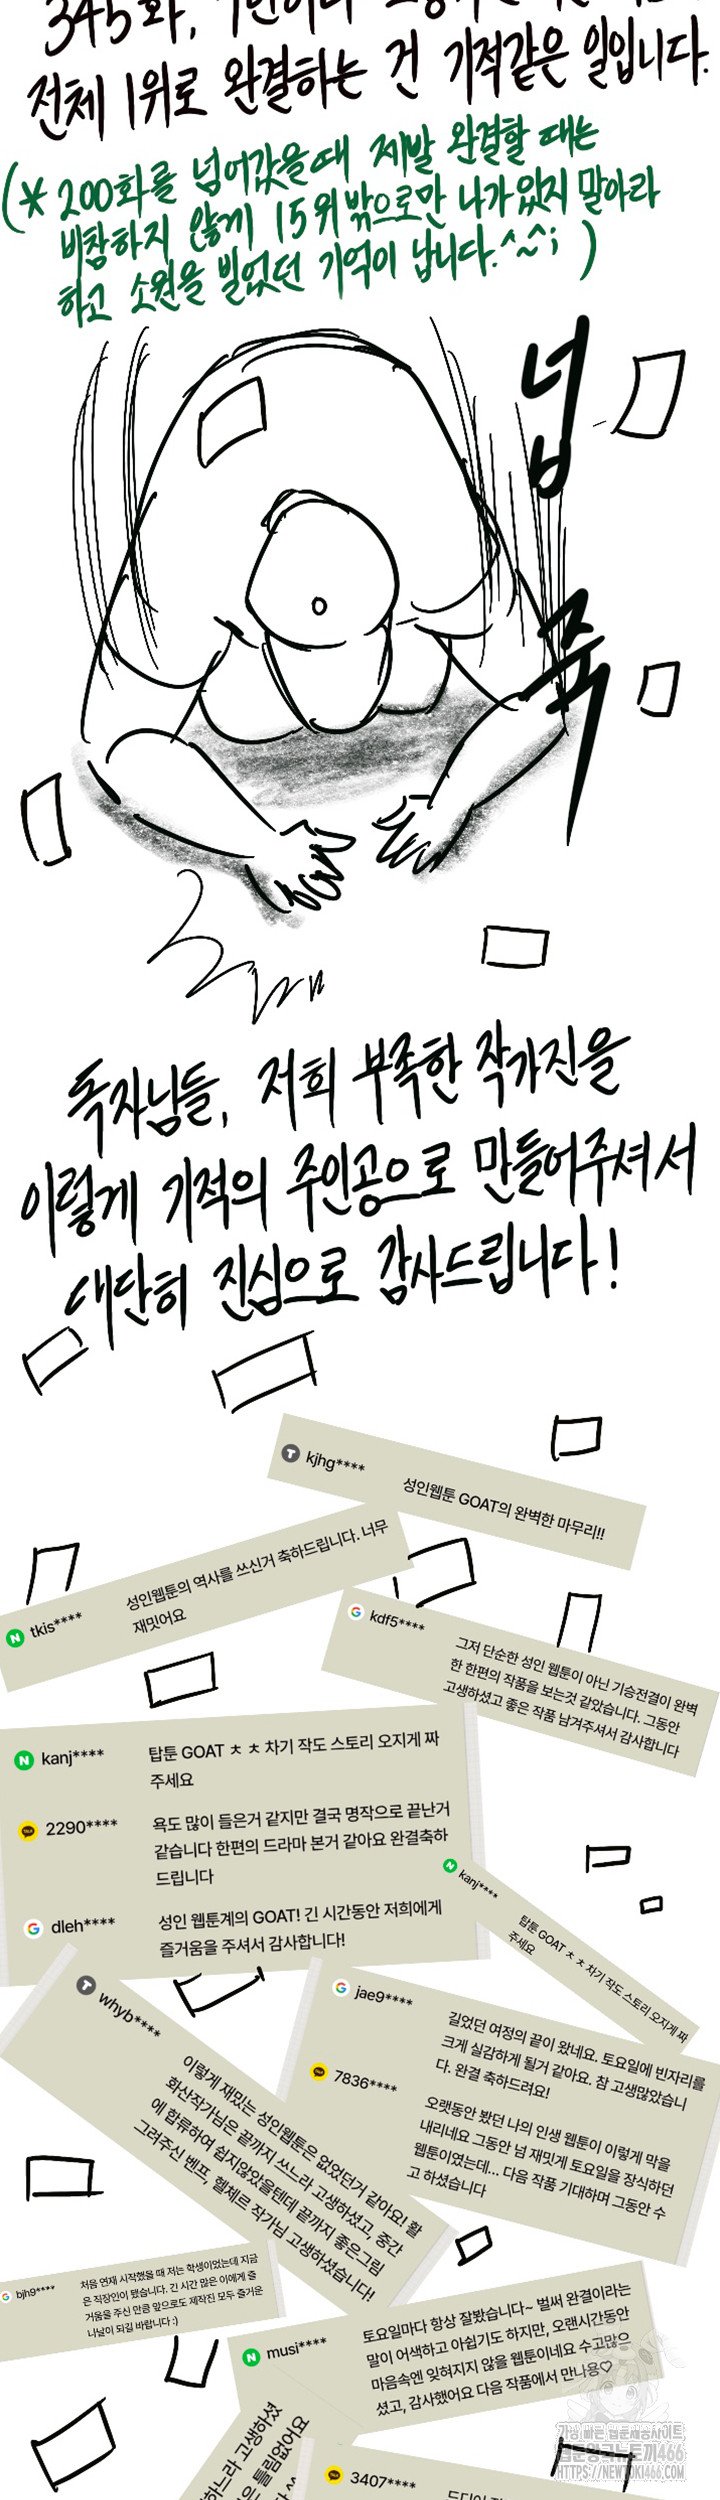 345화,
전체 1위로 완결하는 건 기적같은 일입니다.
(* 200화를 넘어갔을때 제발 완결할 때는
비참하지 않게 15위 밖으로만 나가있지 말아라
하고 소원을 빌었던 기억이 납니다.^~^; )
넙
죽
독자님들, 저희 부족한 작가진을
이렇게 기적의 주인공으로 만들어주셔서
대단히 진심으로 감사드립니다!
kjhg****
성인웹툰 GOAT의 완벽한 마무리!!
tkis****
성인웹툰의 역사를 쓰신거 축하드립니다. 너무
재밋어요
kdf5****
그저 단순한 성인 웹툰이 아닌 기승전결이 완벽
한 한편의 작품을 보는것 같았습니다. 그동안
고생하셨고 좋은 작품 남겨주셔서 감사합니다
kanj****
탑툰 GOAT ㅊㅊ 차기 작도 스토리 오지게 짜
주세요
2290****
욕도 많이 들은거 같지만 결국 명작으로 끝난거
같습니다 한편의 드라마 본거 같아요 완결축하
드립니다
dleh****
성인 웹툰계의 GOAT! 긴 시간동안 저희에게
즐거움을 주셔서 감사합니다!
kanj****
탑툰 GOAT ㅊㅊ 차기 작도 스토리 오지게 짜
주세요
whyb****
이렇게 재밌는 성인웹툰은 없었던거 같아요! 활
화산작가님은 끝까지 쓰느라 고생하셨고, 중간
에 합류하여 쉽지않았을텐데 끝까지 좋은그림
그려주신 벤프, 헬체르 작가님 고생하셨습니다!
jae9****
길었던 여정의 끝이 왔네요. 토요일에 빈자리를
크게 실감하게 될거 같아요. 참 고생많았습니
다. 완결 축하드려요!
7836****
오랫동안 봤던 나의 인생 웹툰이 이렇게 막을
내리네요 그동안 넘 재밋게 토요일을 장식하던
웹툰이였는데... 다음 작품 기대하며 그동안 수
고 하셨습니다
bjh9****
처음 연재 시작했을 때 저는 학생이었는데 지금
은 직장인이 됐습니다. 긴 시간 많은 이에게 즐
거움을 주신 만큼 앞으로도 제작진 모두 즐거운
나날이 되길 바랍니다 :)
musi****
토요일마다 항상 잘봤습니다~ 벌써 완결이라는
말이 어색하고 아쉽기도 하지만, 오랜시간동안
마음속엔 잊혀지지 않을 웹툰이네요 수고많으
셨고, 감사했어요 다음 작품에서 만나용♡
하느라 고생하셨
틀림없어요
3407****
가장 빠른 웹툰제공사이트
웹툰왕국뉴토끼466
HTTPS://NEWTOKI466.COM